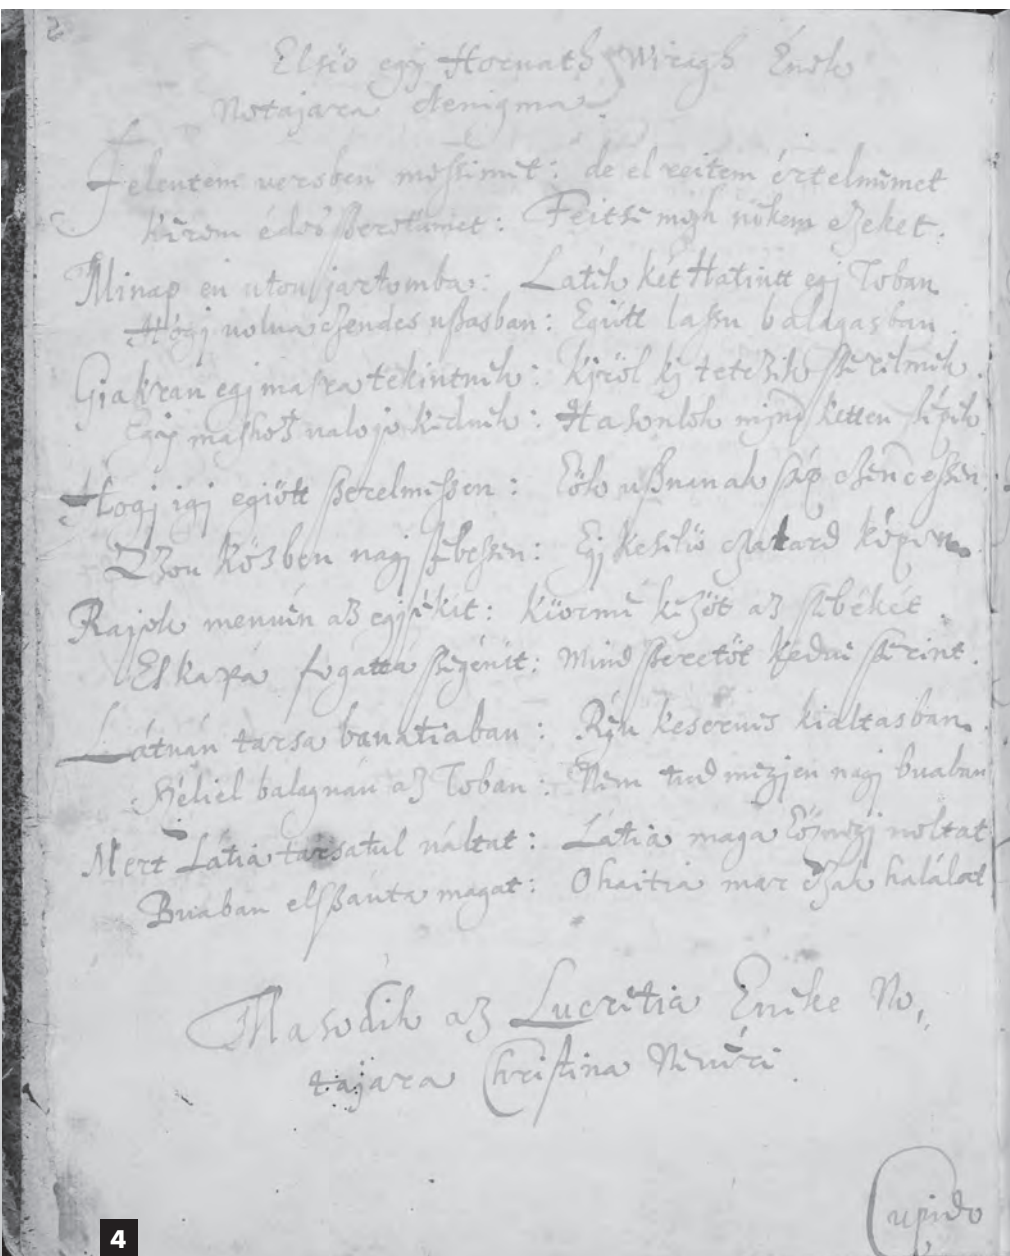 Elsio egy Horuath Wiragh Enek
Notajara Aenigma.
Jelentem versben mesÿmet: de el reitem értelmemet
Kérem édes szeretamet: Feitse megh nékem ezeket.
Minap én uton jartomba: Laték két Hattiut egj Toban
Hogj uolna czendes uszasban: Egiütt lassu balagasban.
Giakran egj masra tekintnek: Kjröl kj tetczik szerelmek.
Egj mashoz ualo jo kednek: Hasonlok mjnd ketten képek
Hogj igj egiött szerelmessen: Eök usznanak szép czendessen.
Azon közben nagj sebessen: Egj Kesiliö czatard képen
Rajok menuén az egjikét: Körmé közöt az szebékét.
El kapa fogatta szegént: Mind szeretöt kedue szerint.
Látuán tarsa banatiaban: Rén keserues kialtasban.
Széliel balagnan az Toban: Nem tud megjen nagj buaban
Mert Látia tarsatul uáltat: Látia maga Eözuegj uoltat
Buaban elszánta magat: Ohaitia mar czak halálat
Masodik az Lucretia Enéke No,
tajara Christina Neuéré
Cupido
4